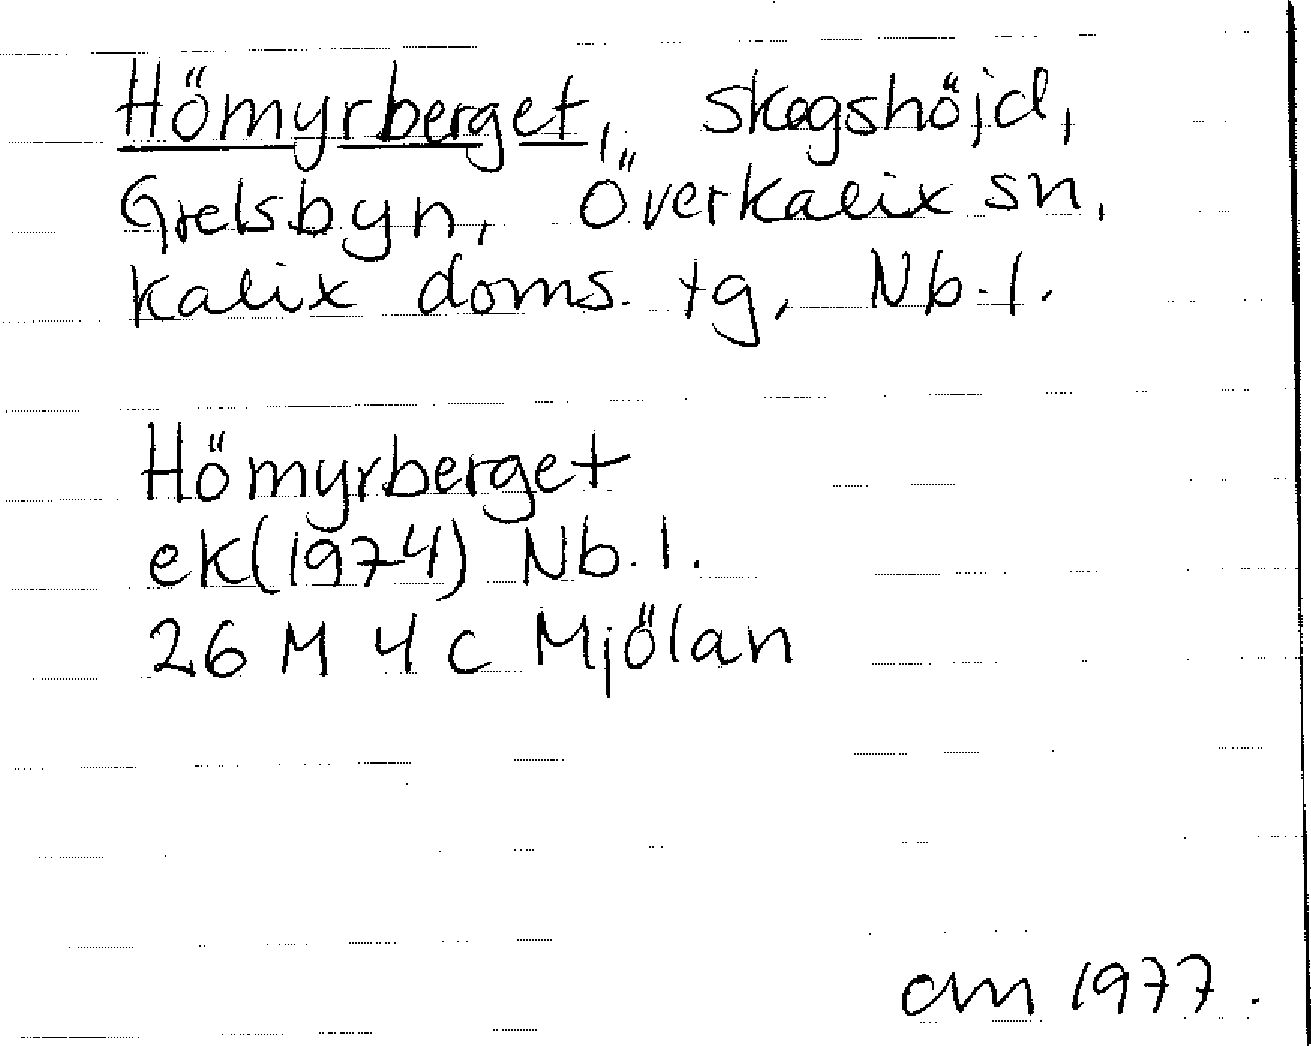 Hömyrberget, skogshöjd,
Grelsbyn, Överkalix sn,
Kalix doms. tg, Nb.l.
Hömyrberget
ek(1974) Nb.l.
26 M 4 c Mjölan
am 1977.